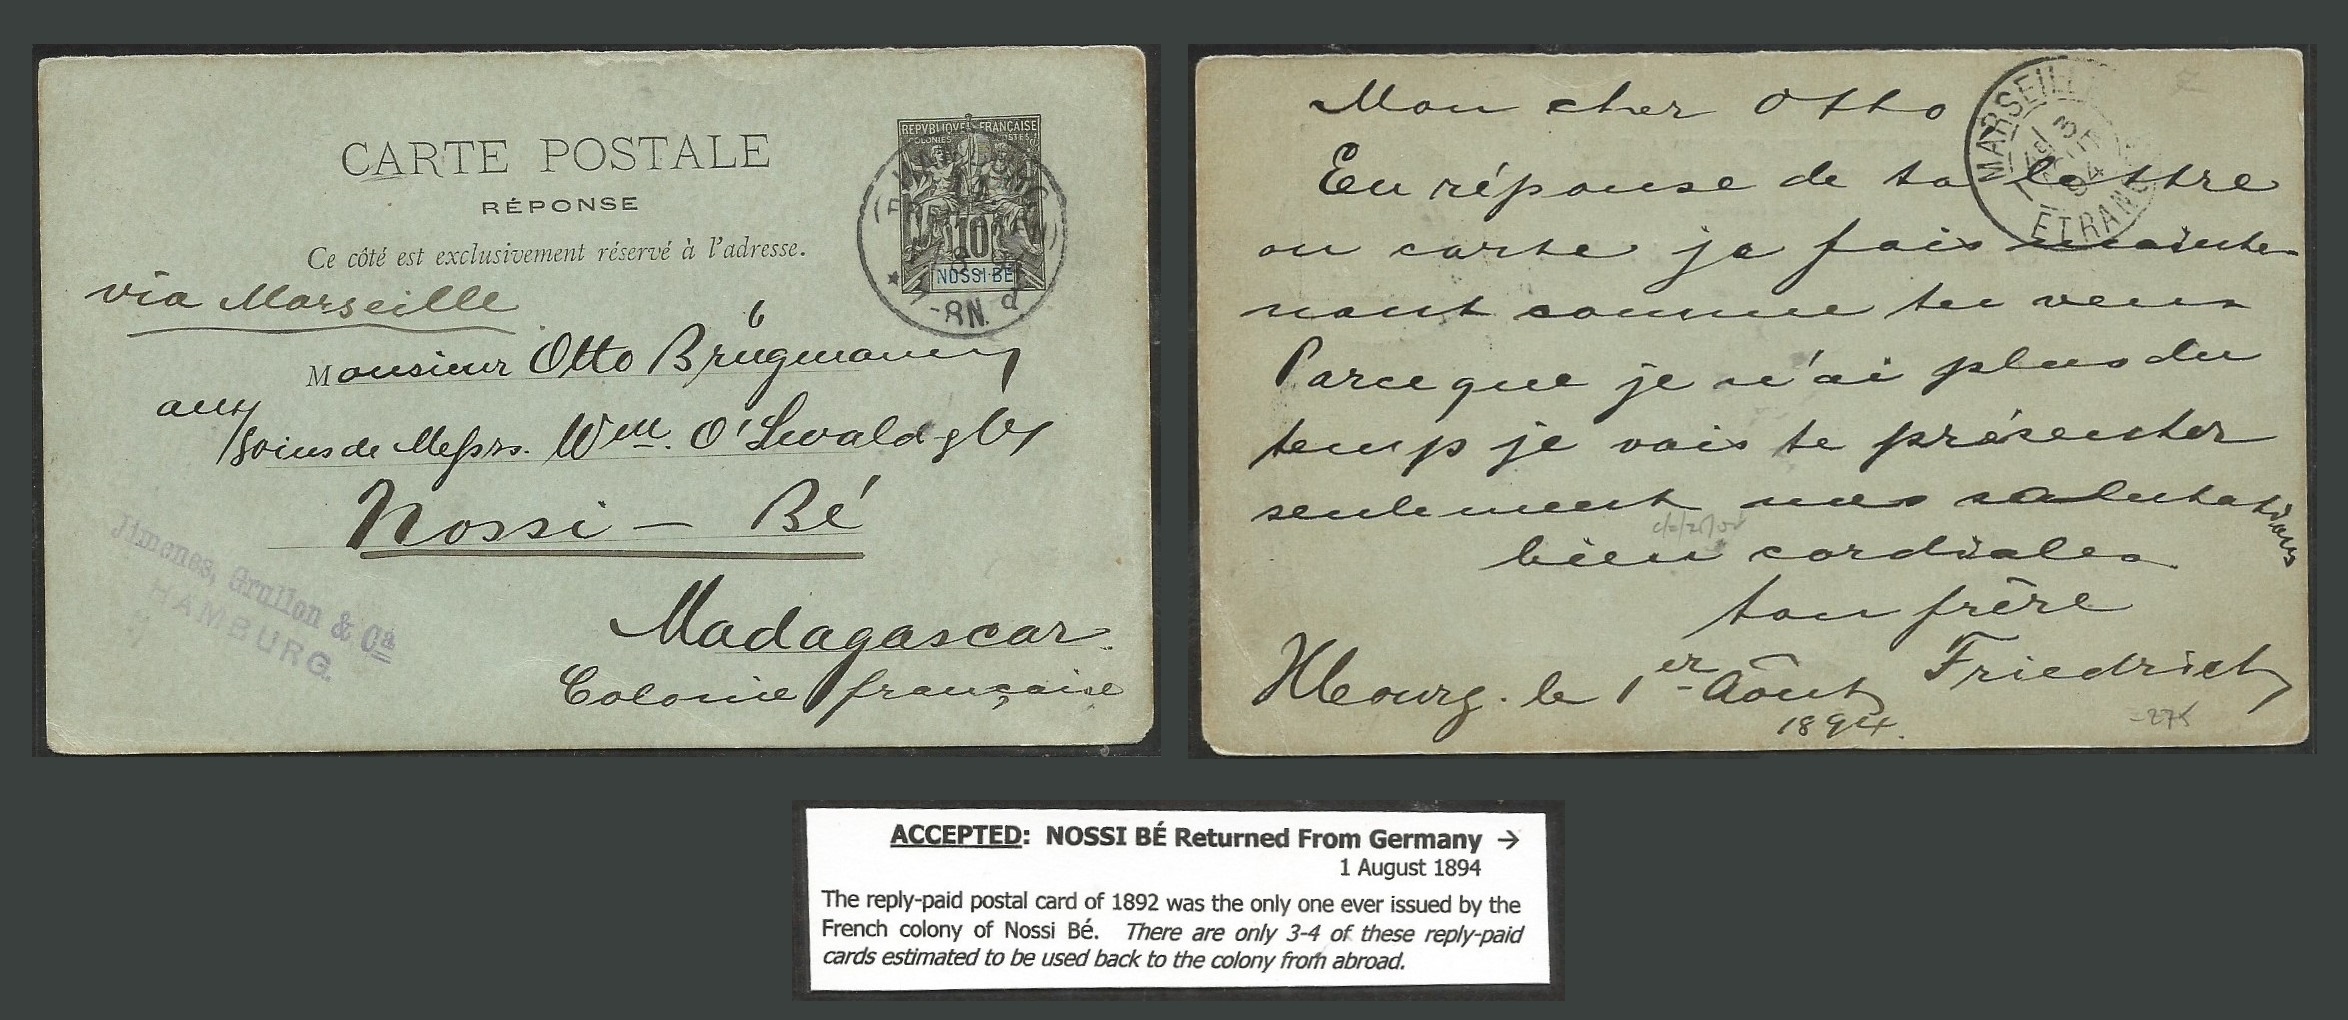 CARTE POSTALE
RÉPONSE
Ce côté est exclusivement réservé à l'adresse.
REPVBLIQUE FRANÇAISE
COLONIES POSTES
10
NOSSI-BÉ
8-9N.
via Marseille
6
Monsieur Otto Brügmann
aux soins de Messrs. Wm. O'Swald & Co
Nossi - Bé
Madagascar
Colonie française
Jimenes, Grullon & Ca
HAMBURG.
Mon cher Otto
MARSEILLE
3
94
ETRANG
En réponse de ta lettre
ou carte je fais mainte-
nant comme tu veux
Parce que je n'ai plus du
temp je vais te présenter
seulement mes salutations
bien cordiales
ton frère
Friedrich
Hbourg. le 1er Août
1894.
-275
ACCEPTED: NOSSI BÉ Returned From Germany →
1 August 1894
The reply-paid postal card of 1892 was the only one ever issued by the
French colony of Nossi Bé. There are only 3-4 of these reply-paid
cards estimated to be used back to the colony from abroad.